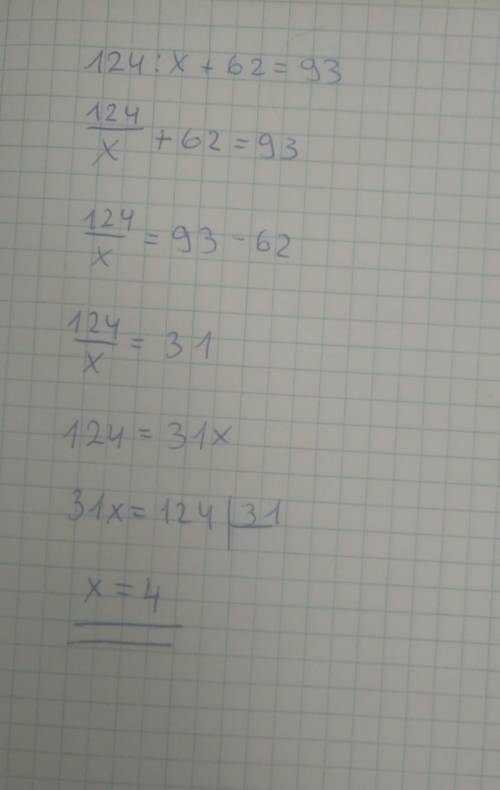 124 : x + 62 = 93
124/x + 62 = 93
124/x = 93 - 62
124/x = 31
124 = 31x
31x = 124 | 31
x = 4